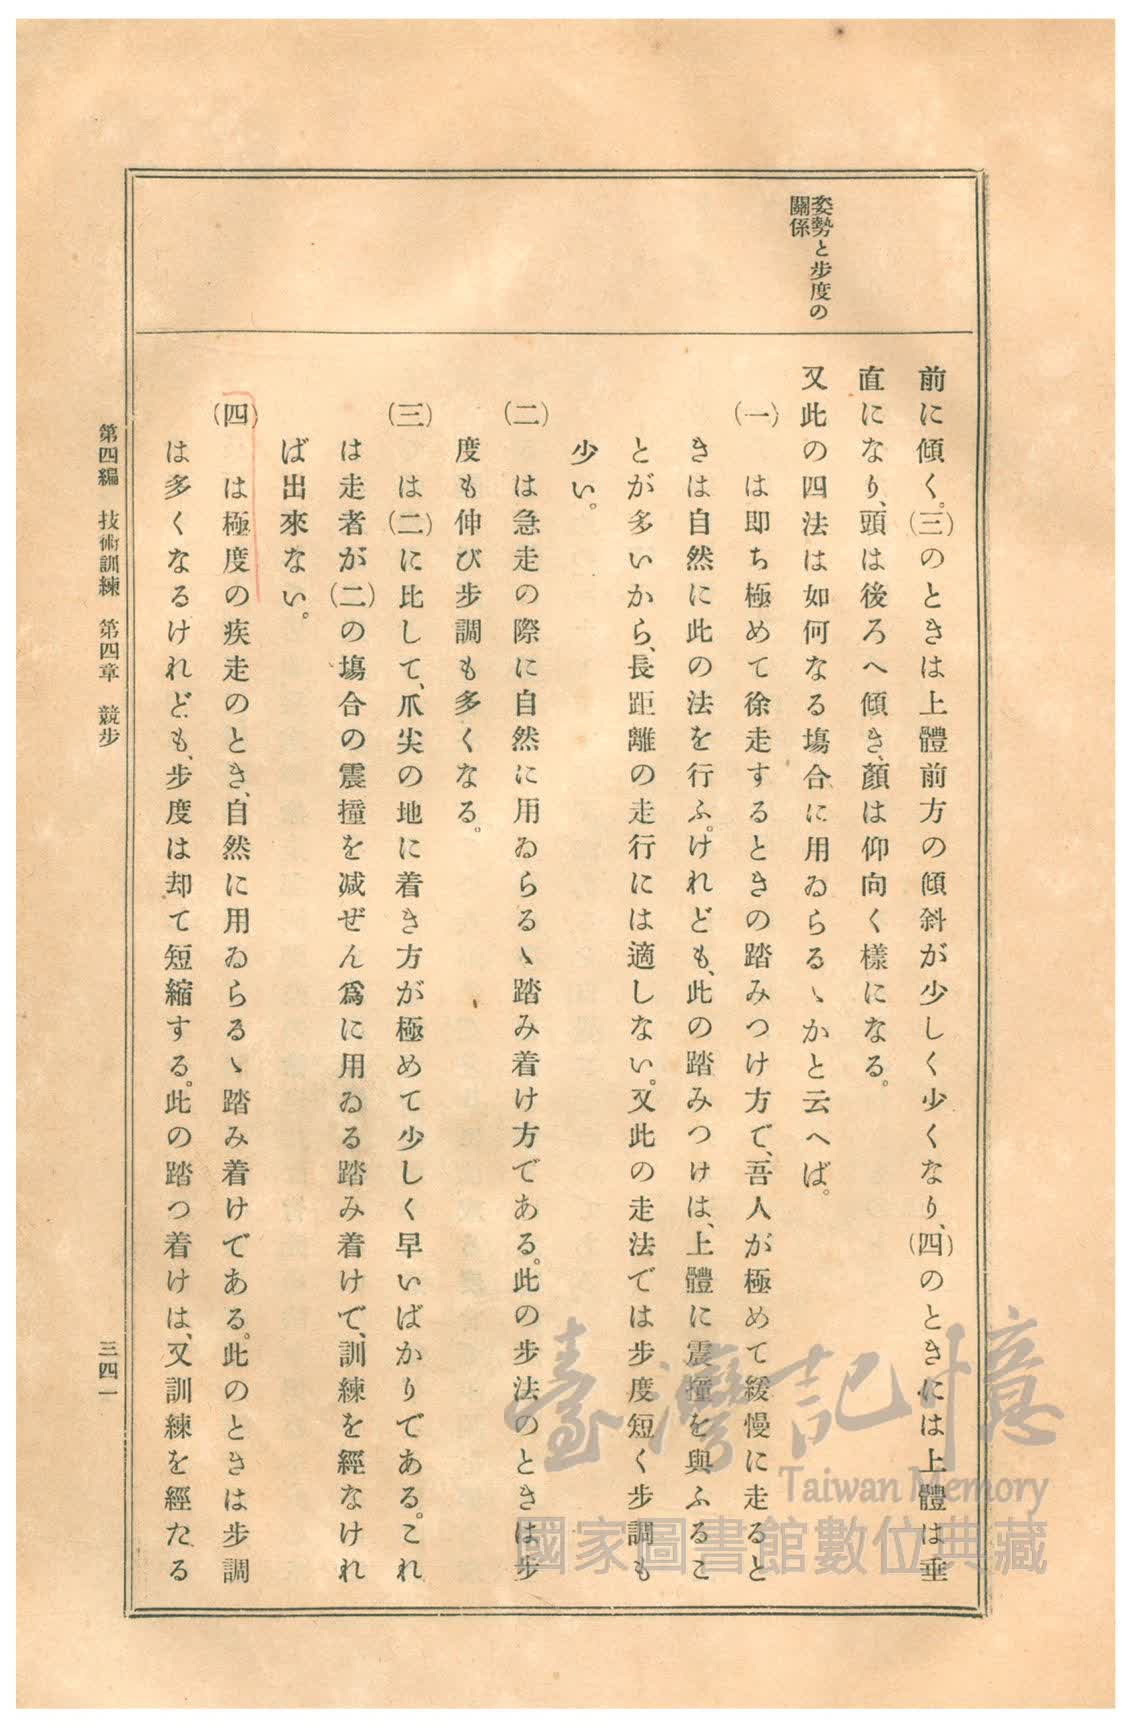 姿勢と步度の
關係
前に傾く。(三)のときは上體前方の傾斜が少しく少くなり、(四)のときには上體は垂
直になり、頭は後ろへ傾き、顏は仰向く樣になる。
又此の四法は如何なる塲合に用ゐらるゝかと云へば。
(一)　は即ち極めて徐走するときの踏みつけ方で、吾人が極めて緩慢に走ると
きは自然に此の法を行ふ。けれども、此の踏みつけは、上體に震撞を與ふるこ
とが多いから、長距離の走行には適しない。又此の走法では步度短く步調も
少い。
(二)　は急走の際に自然に用ゐらるゝ踏み着け方である。此の步法のときは步
度も伸び步調も多くなる。
(三)　は(二)に比して、爪尖の地に着き方が極めて少しく早いばかりである。これ
は走者が(二)の塲合の震撞を减ぜん爲に用ゐる踏み着けで、訓練を經なけれ
ば出來ない。
(四)　は極度の疾走のとき、自然に用ゐらるゝ踏み着けである。此のときは步調
は多くなるけれども、步度は却て短縮する。此の踏つ着けは、又訓練を經たる
第四編　技術訓練　第四章　競步
三四一
臺灣記憶
Taiwan Memory
國家圖書館數位典藏